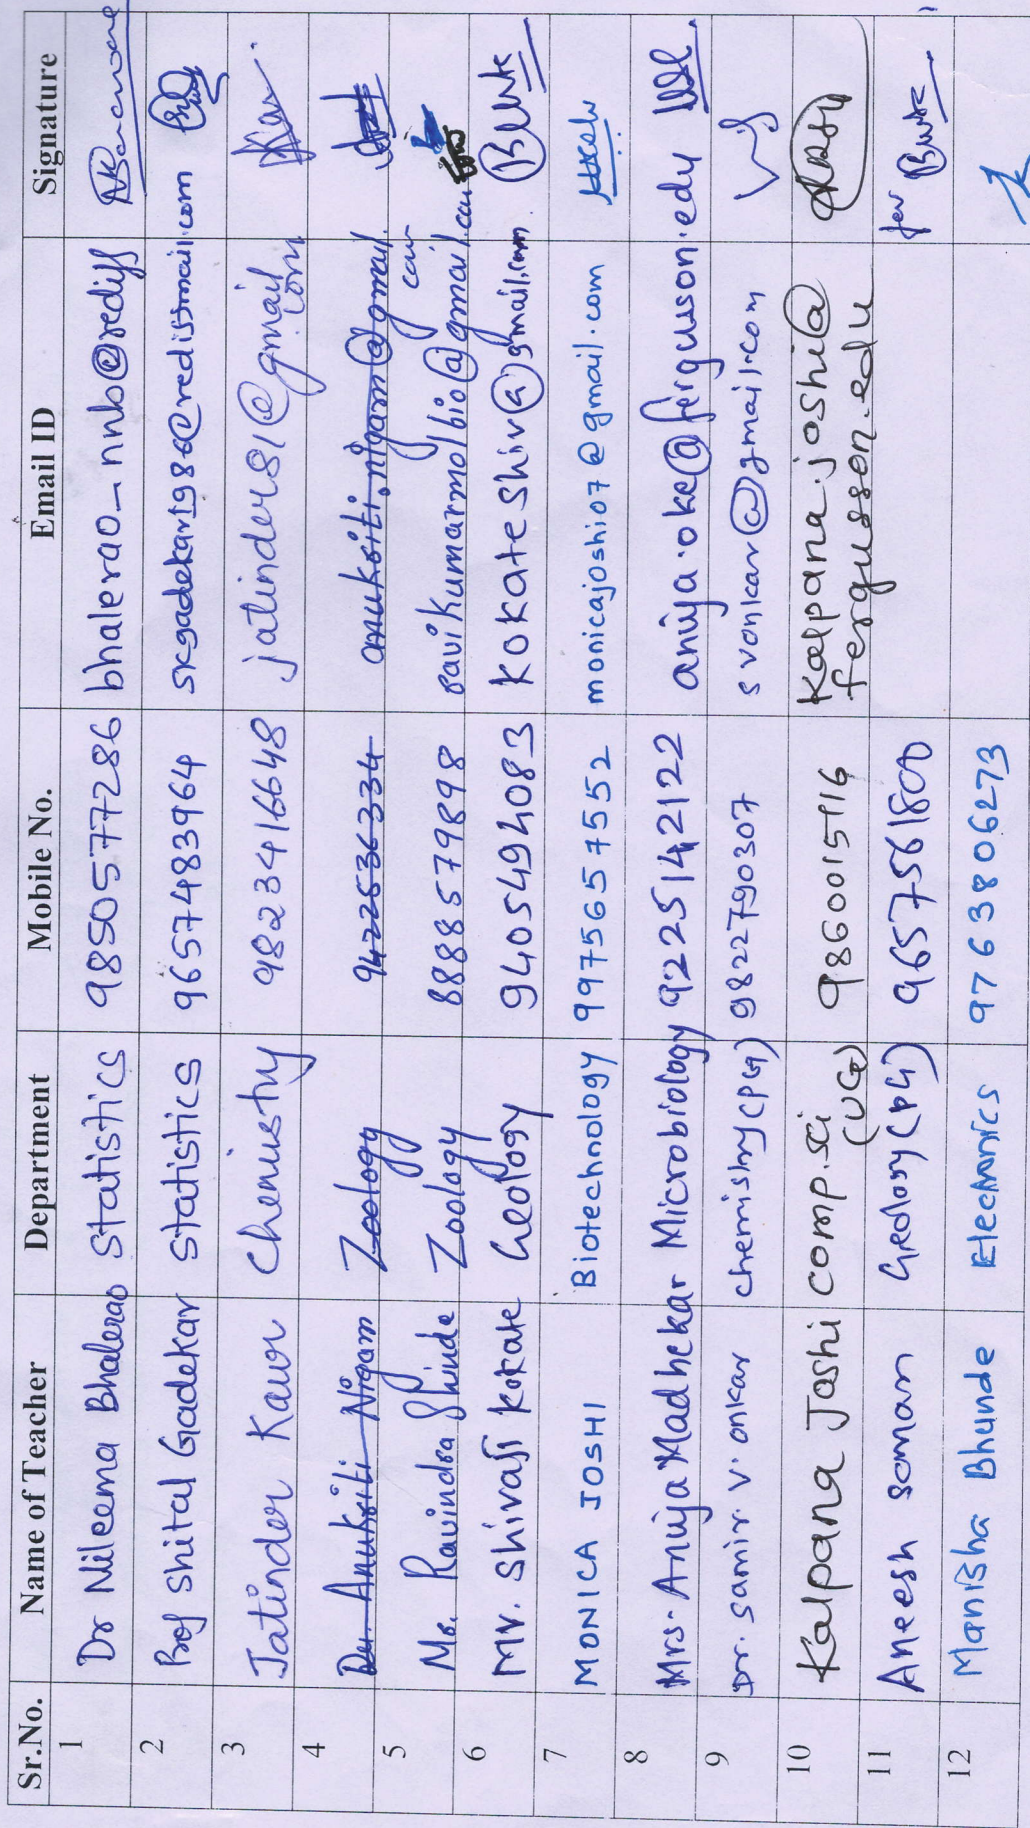 Sr.No. Name of Teacher Department Mobile No. Email ID Signature
1 Dr Nileema Bhalerao Statistics 9850577286 bhalerao_nnb@rediff
2 Prof Shital Gadekar Statistics 9657483964 skgadekar1986@rediffmail.com
3 Jatinder Kaur Chemistry 9823416648 jatinder81@gmail
.com
4 Dr. Anukriti Nigam Zoology 9422536334 anukriti.nigam@gmail.
com
5 Mr. Ravindra Shinde Zoology 8888579898 ravikumarmolbio@gmail.com
6 Mr. Shivaji Kokate Geology 9405492083 kokateshiv@gmail.com
7 MONICA JOSHI Biotechnology 9975657552 monicajoshi07@gmail.com
8 Mrs. Anuja Madhekar Microbiology 9225142122 anuja.oke@fergusson.edu
9 Dr. Samir V. Onkar chemistry(PG) 9822790307 svonkar@gmail.com
10 Kalpana Joshi comp.sci 9860015116 kalpana.joshi@
(UG) fergusson.edu
11 Aneesh Soman Geology(PG) 9657561800 for
12 Manisha Bhunde Electronics 9763806273